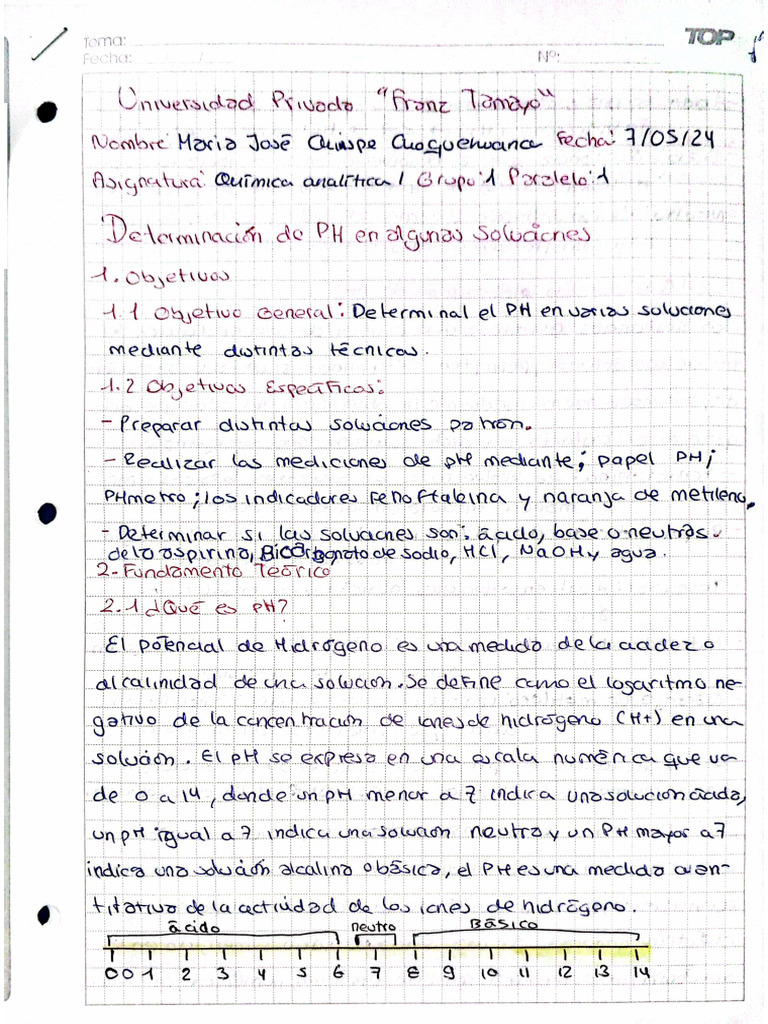 Tema:
TOP
Fecha: / /
Nº:
Universidad Privada "Franz Tamayo"
Nombre Maria José Quispe Fecha: 7/05/24
Asignatura: Química analítica I Grupo:1 Paralelo:1
Determinación de PH en algunas soluciones
1. Objetivos
1.1 Objetivo General: Determinal el PH en varias soluciones
mediante distintas técnicas.
1.2 Objetivos Específicos:
- Preparar distintas soluciones patron.
- Realizar las mediciones de pH mediante; papel PH;
PHmetro; los indicadores Fenoftaleina y naranja de metileno,
- Determinar si las soluciones son: ácido, base o neutros
de la aspirina, Bicarbonato de sodio, HCl, NaOH y agua.
2.- Fundamento Teórico
2.1 ¿Qué es PH?
El potencial de Hidrógeno es una medida de la acidez o
alcalinidad de una solución. Se define como el logaritmo ne-
gativo de la concentración de iones de hidrógeno (H+) en una
solución. El pH se expresa en una escala numérica que va
de 0 a 14, donde un pH menor a 7 indica una solución ácida,
un pH igual a 7 indica una solución neutra y un PH mayor a 7
indica una solución alcalina o básica, el PH es una medida cuan-
titativa de la actividad de los iones de hidrógeno.
ácido neutro Básico
00 1 2 3 4 5 6 7 8 9 10 11 12 13 14